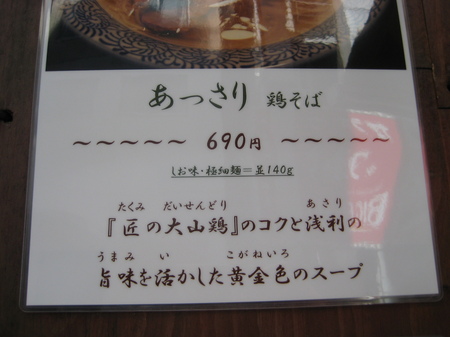 あっさり 鶏そば
～～～～～ 690円 ～～～～～
しお味・極細麺＝並140g
たくみ だいせんどり あさり
『匠の大山鶏』のコクと浅利の
うまみ い こがねいろ
旨味を活かした黄金色のスープ